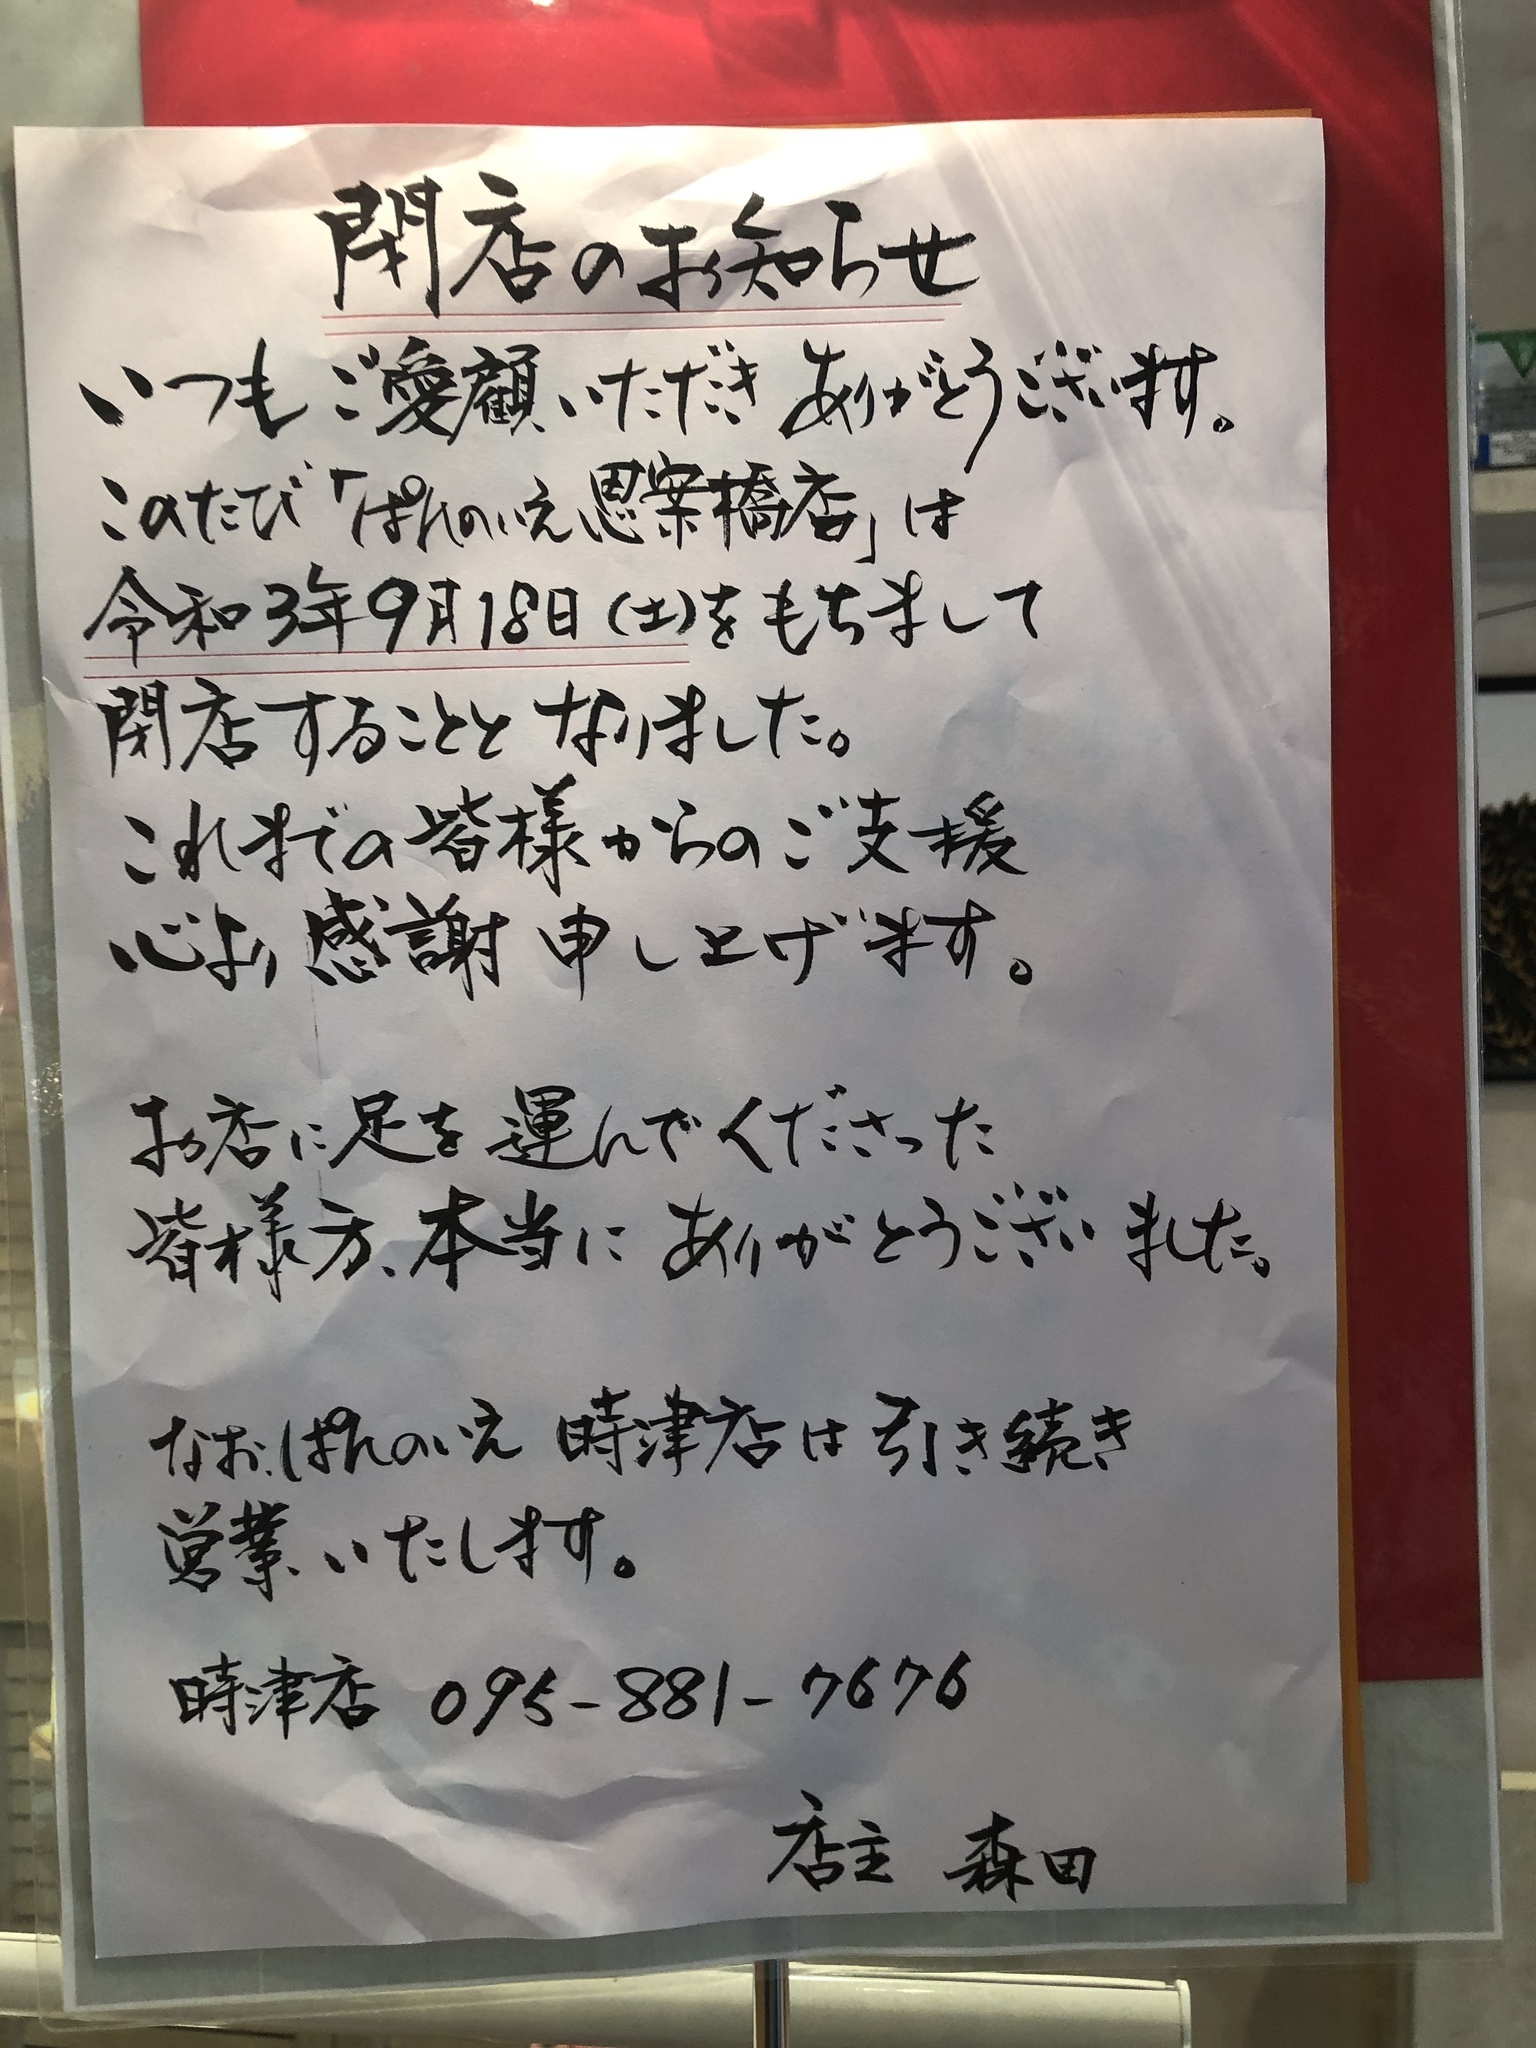 閉店のお知らせ
いつもご愛顧いただきありがとうございます。
このたび「ぱんのいえ思案橋店」は
令和3年9月18日(土)をもちまして
閉店することとなりました。
これまでの皆様からのご支援
心より感謝申し上げます。
お店に足を運んでくださった
皆様方、本当にありがとうございました。
なお、ぱんのいえ 時津店は引き続き
営業いたします。
時津店 095-881-7676
店主 森田